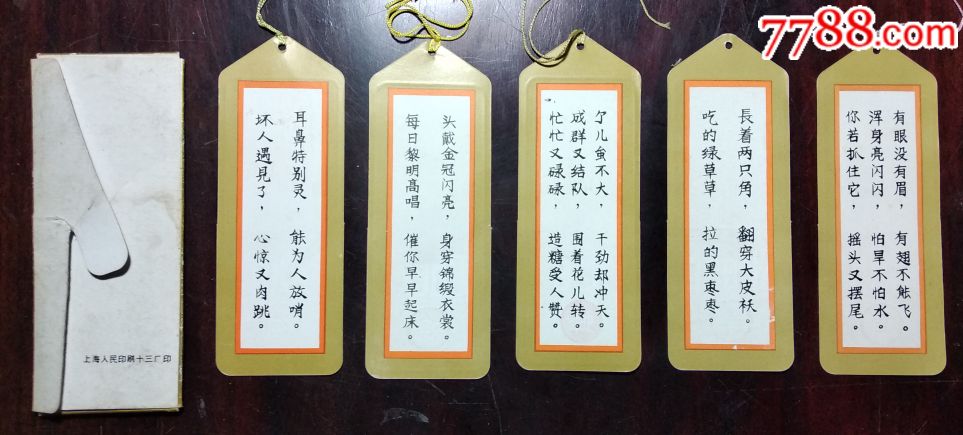 7788.com
上海人民印刷十三厂印
耳鼻特别灵，能为人放哨。
坏人遇見了，心惊又肉跳。
头戴金冠闪亮，身穿锦缎衣裳。
每日黎明高唱，催你早早起床。
亇儿虽不大，干劲却冲天。
成群又结队，围着花儿转。
忙忙又碌碌，造糖受人赞。
長着两只角，翻穿大皮袄。
吃的绿草草，拉的黑枣枣。
有眼没有眉，有翅不能飞。
浑身亮闪闪，怕旱不怕水。
你若抓住它，摇头又摆尾。